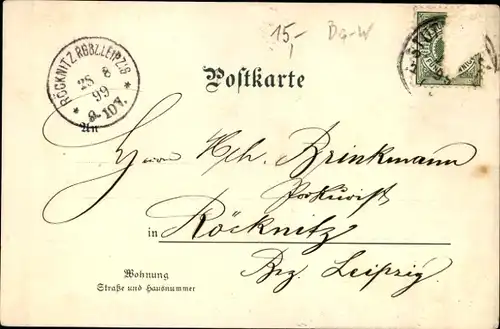 15,- Bg-W
RÖCKNITZ R.GBZ.LEIPZIG
28 8
99
8-10V.
Postkarte
An
Herrn Hch. Brinkmann
Prokurist
in Röcknitz
Bez. Leipzig.
Wohnung
Straße und Hausnummer